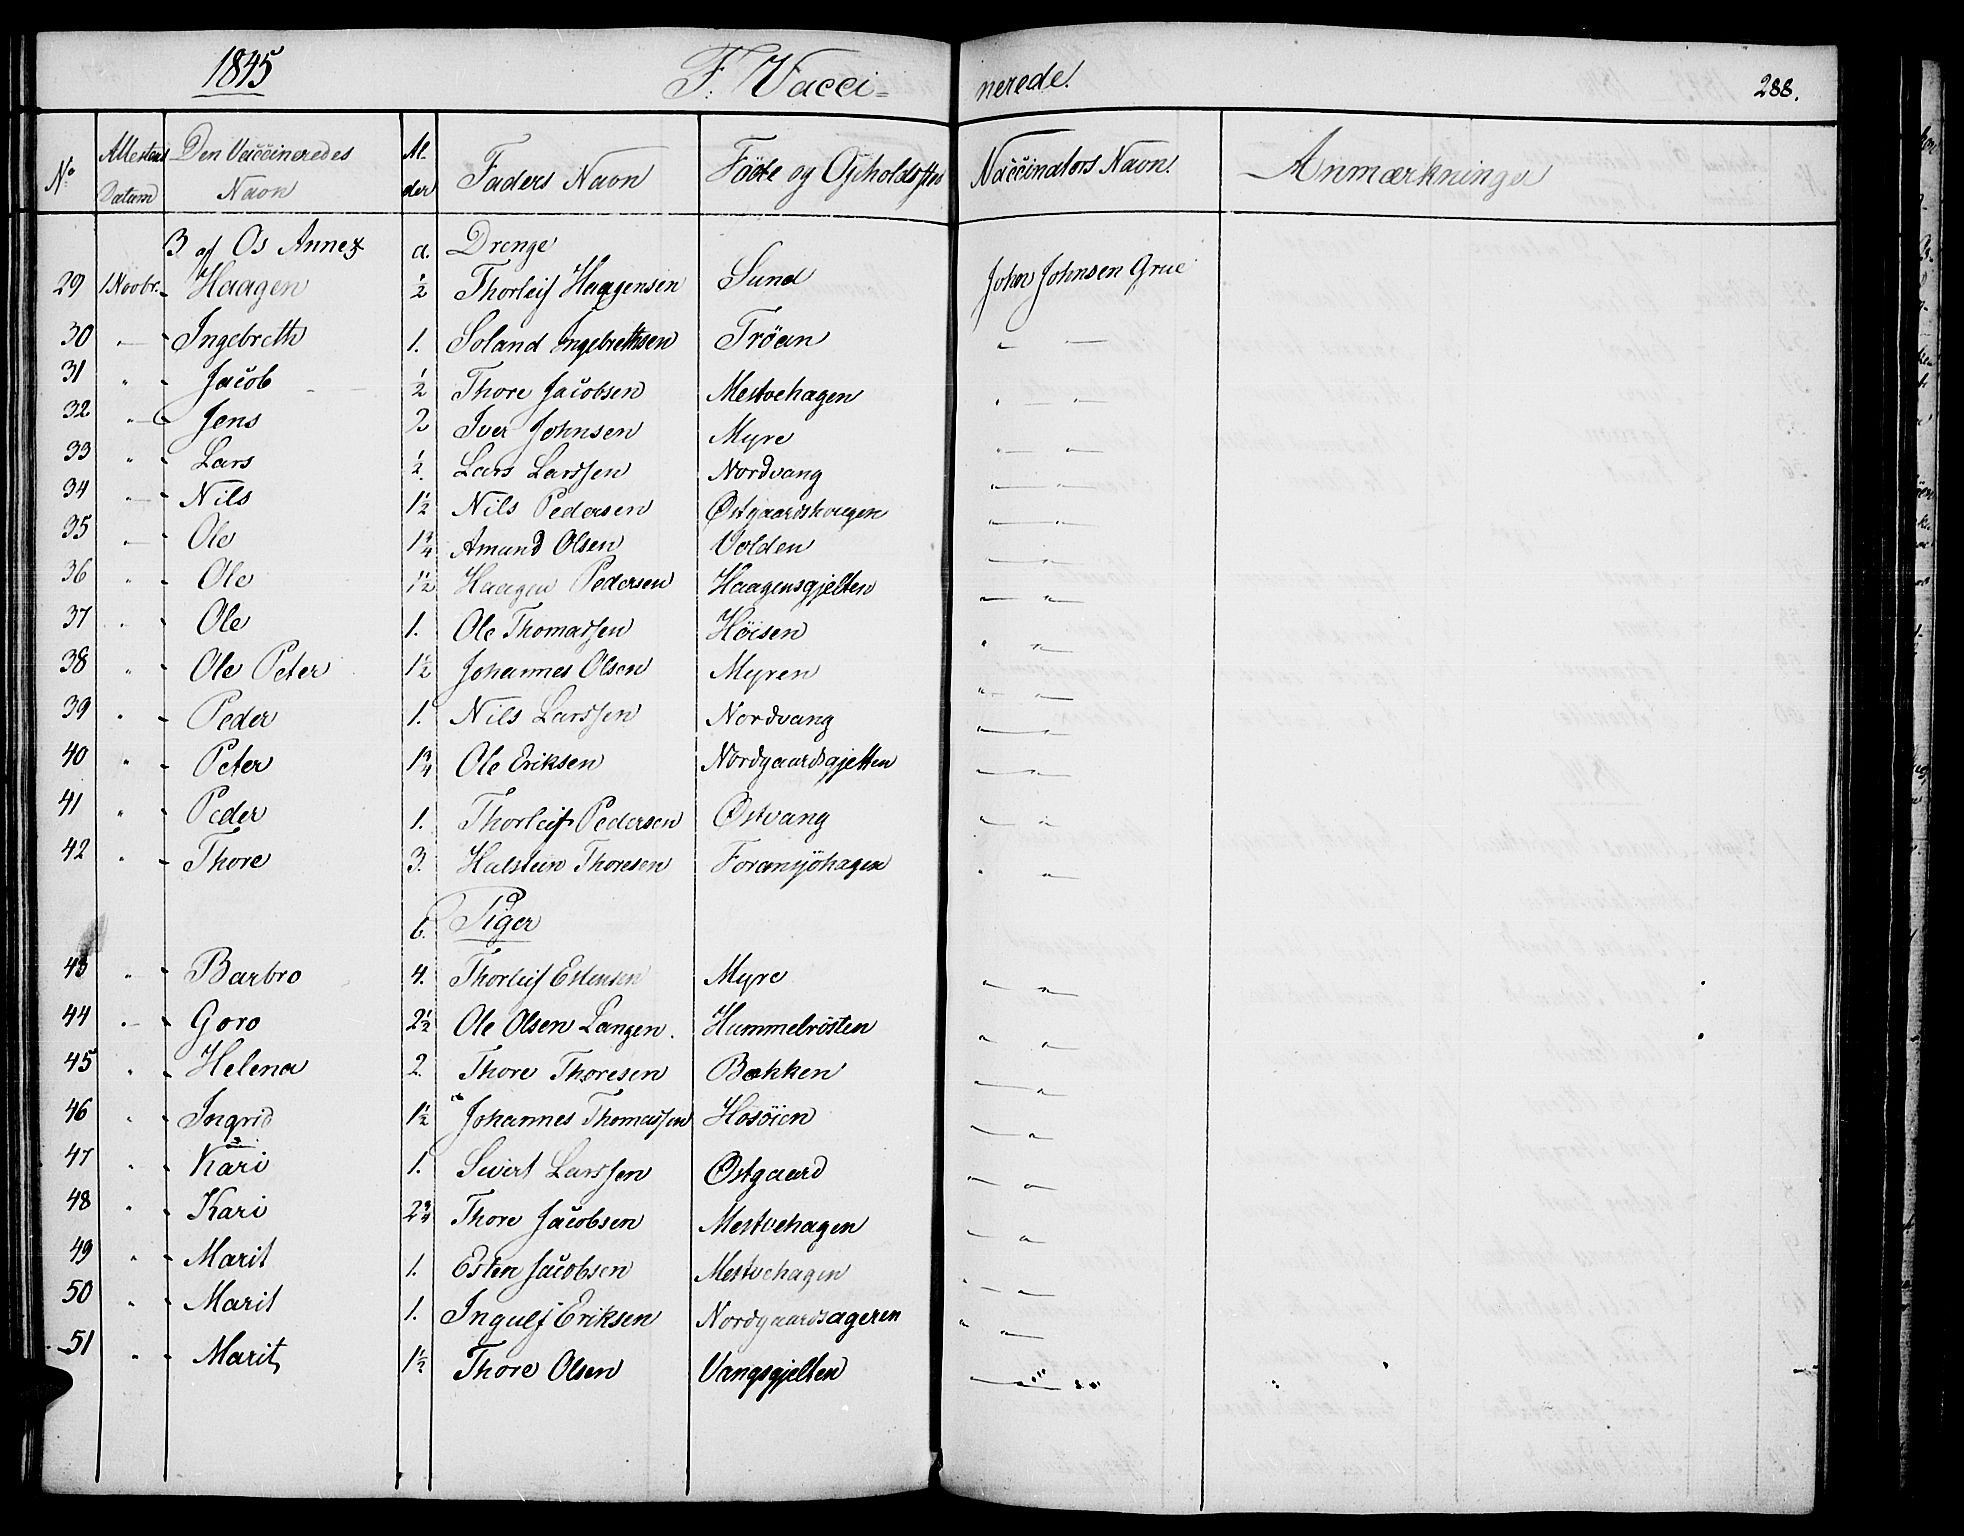 1845 F. Vacci- nerede. 288.
No Attestens Datum Den Vaccineredes Navn Al- der Faders Navn Föde og Opholdssted Vaccinators Navn. Anmærkninger
3 af Os Annex a. Drenge
29 1 Novbr. - Haagen ½ Thorleif Haagensen Sund John Johnsen Grue
30 " - Ingebreth 1. Soland Ingebrethsen Tröen " "
31 " - Jacob ½ Thore Jacobsen Mestvehagen " "
32 " - Jens 2 Iver Johnsen Myre " "
33 " - Lars ½ Lars Larssen Nordvang " "
34 " - Nils 1½ Nils Pedersen Östgaardshougen " "
35 " - Ole 1¾ Amund Olsen Volden " "
36 " - Ole 1½ Haagen Pedersen Haagensgjelten " "
37 " - Ole 1. Ole Thomassen Höisen " "
38 " - Ole Peter 1½ Johannes Olsen Myren " "
39 " - Peder 1. Nils Larssen Nordvang " "
40 " - Peter 1¾ Ole Eriksen Nordgaardsgjelten " "
41 " - Peder 1. Thorleif Pedersen Östvang " "
42 " - Thore 3. Halstein Thoresen Foranjöhagen " "
b. Piger
43 " - Barbro 4. Thorleif Estensen Myre " "
44 " - Goro 2½ Ole Olsen Langen. Hummelrösten " "
45 " - Helena 2. Thore Thoresen Bækken " "
46 " - Ingrid 1½ Johannes Thomassen Hosöien " "
47 " - Kari 1. Sivert Larssen Östgaard " "
48 " - Kari 2¾ Thore Jacobsen Mestvehagen " "
49 " - Marit 1. Esten Jacobsen Mestvehagen " "
50 " - Marit 1. Ingulf Eriksen Nordgaardsageren " "
51 " - Marit 1½ Thore Olsen Vangsgjelten " "